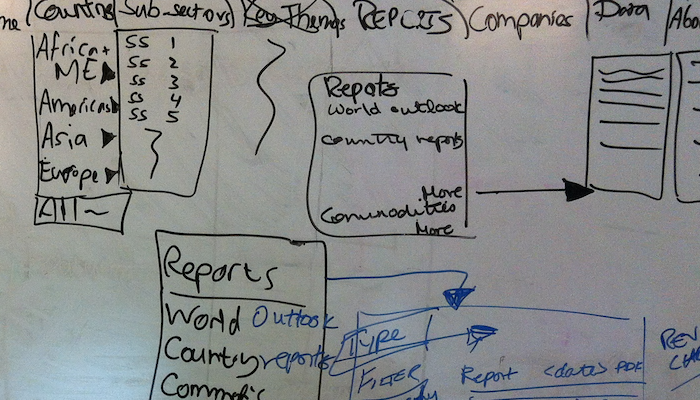 Countries Sub-sectors Key Themes REPORTS Companies Data Abo
Africa +
ME
Americas
Asia
Europe
All ~
SS 1
SS 2
SS 3
SS 4
SS 5
Reports
World outlook
Country reports
More
Commodities
More
Reports
World Outlook
Country reports
TYPE
FILTER
Report <data> PDF
REV